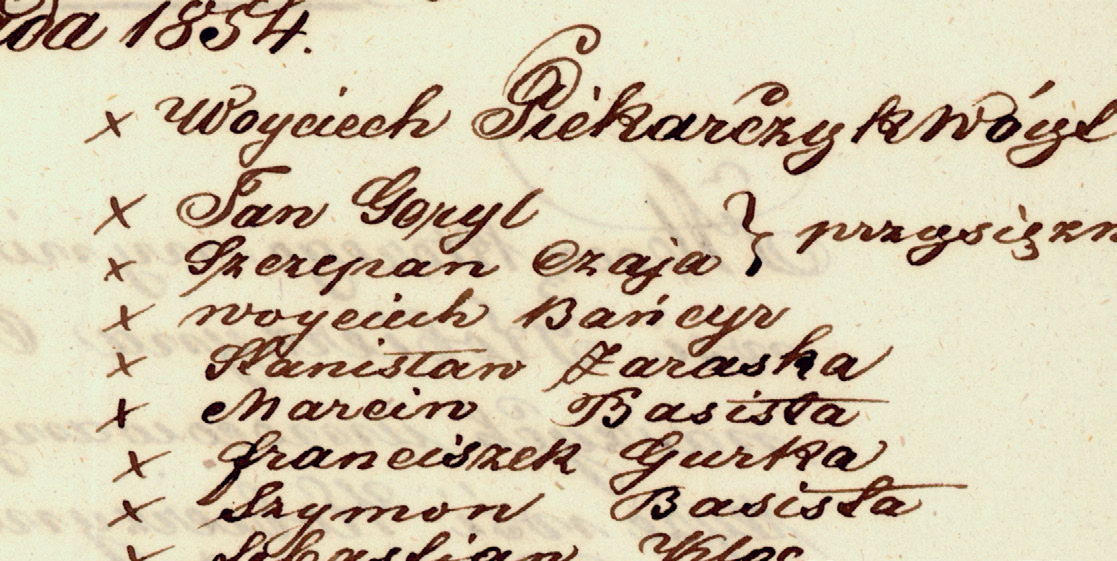 1854.
× Woyciech Piekarczyk Wóyt
× Jan Goryl
} przysiężn
× Szczepan Czaja
× Woyciech Bańcyr
× Stanisław Zaraska
× Marcin Basista
× franciszek Gurka
× Szymon Basista
× Sebastian Kloc